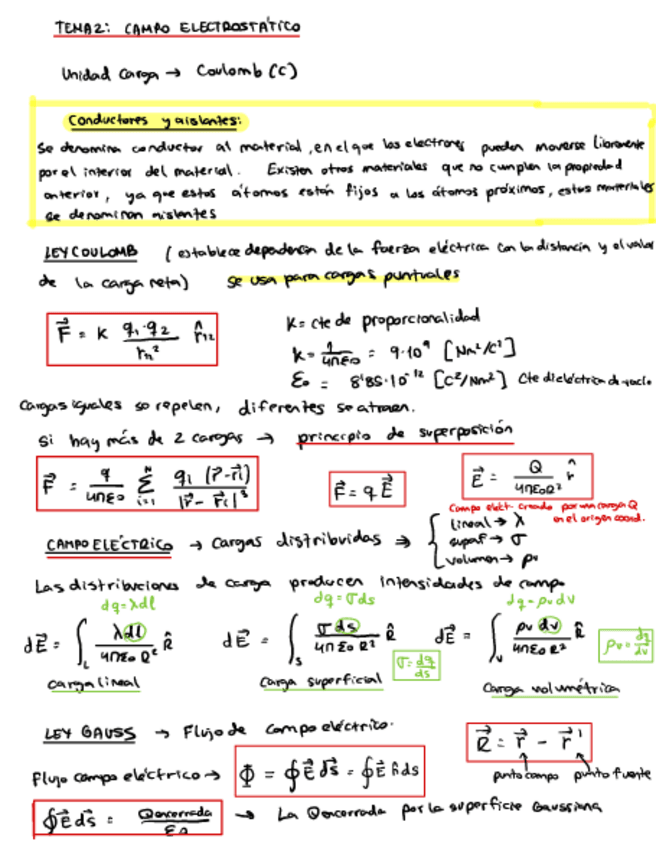 TEMA2: CAMPO ELECTROSTÁTICO
Unidad Carga → Coulomb (C)
Conductores y aislantes:
Se denomina conductor al material, en el que los electrones pueden moverse libremente
por el interior del material. Existen otros materiales que no cumplen la propiedad
anterior, ya que estos átomos están fijos a los átomos próximos, estos materiales
se denominan aislantes
LEY COULOMB (establece dependencia de la fuerza eléctrica con la distancia y el valor
de la carga neta) se usa para cargas puntuales
F⃗ = K (q₁·q₂)/(r₁₂²) r̂₁₂
K = cte de proporcionalidad
K = 1/(4πε₀) = 9·10⁹ [Nm²/C²]
ε₀ = 8'85·10⁻¹² [C²/Nm²] Cte dieléctrica de vacío
Cargas iguales se repelen, diferentes se atraen.
Si hay más de 2 cargas → principio de superposición
F⃗ = q/(4πε₀) Σᵢ₌₁ᴺ qᵢ (r⃗-r⃗ᵢ)/|r⃗-r⃗ᵢ|³
F⃗ = q E⃗
E⃗ = Q/(4πε₀R²) r̂
Campo elect. creado por una carga Q
en el origen coord.
CAMPO ELÉCTRICO → Cargas distribuidas ⇒
lineal → λ
superf → σ
volumen → ρv
Las distribuciones de carga producen intensidades de campo
dq=λdl dq=σds dq=ρv dv
dE⃗ = ∫_L λdl/(4πε₀R²) R̂ dE⃗ = ∫_S σds/(4πε₀R²) R̂ dE⃗ = ∫_V ρv dv/(4πε₀R²) R̂
σ = dq/ds
ρv = dq/dv
carga lineal carga superficial carga volumétrica
LEY GAUSS → Flujo de campo eléctrico.
R⃗ = r⃗ - r⃗'
punto campo punto fuente
Flujo campo eléctrico → Φ = ∮E⃗ ds⃗ = ∮E⃗ n̂ds
∮E⃗ ds⃗ = Qencerrada/ε₀ → La Qencerrada por la superficie Gaussiana